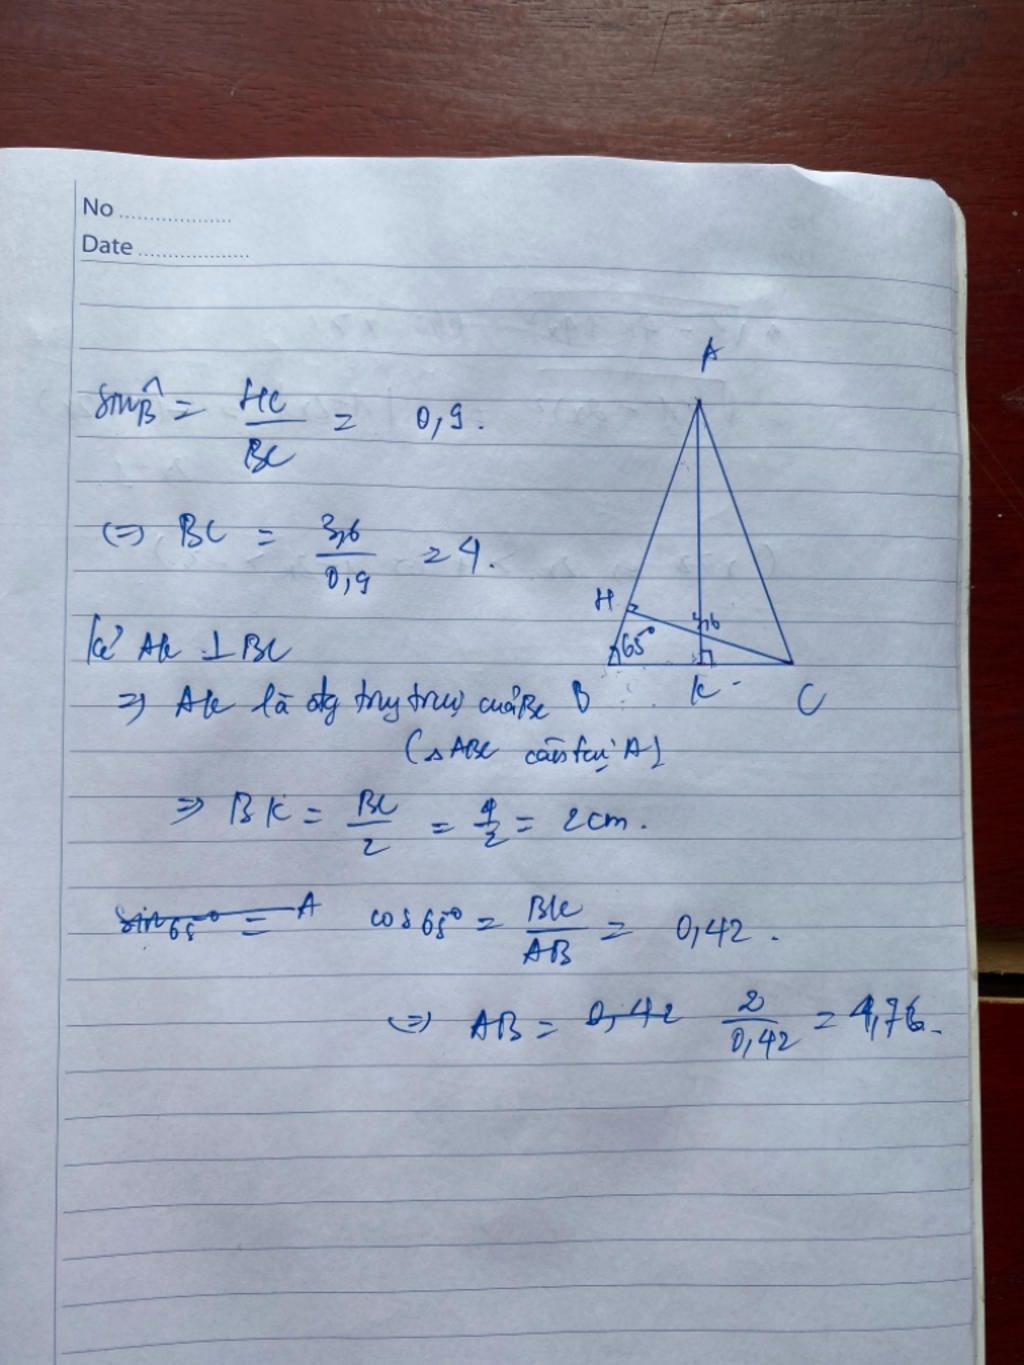 No
Date
A
sin B̂ = HC/BC = 0,9.
⇔ BC = 3,6/0,9 = 4.
H
3,6
65°
Kẻ AK ⊥ BC
⇒ AK là đg trug trực của BC
B K C
(△ABC cân tại A)
⇒ BK = BC/2 = 4/2 = 2cm.
sin 65° = A cos 65° = BK/AB = 0,42.
⇔ AB = 0,42 2/0,42 = 4,76.